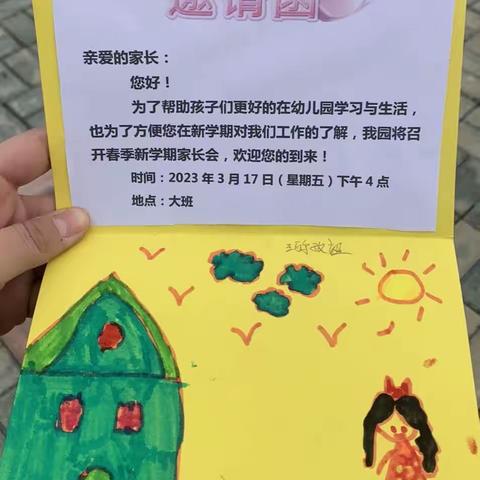 邀请函
亲爱的家长：
您好！
为了帮助孩子们更好的在幼儿园学习与生活，
也为了方便您在新学期对我们工作的了解，我园将召
开春季新学期家长会，欢迎您的到来！
时间：2023 年 3 月 17 日（星期五）下午 4 点
地点：大班